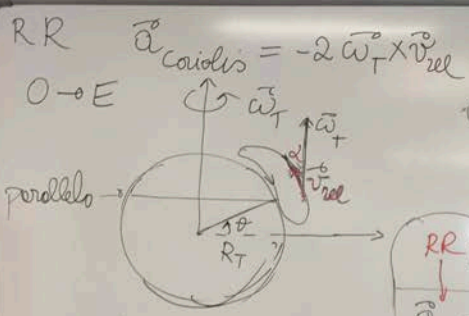 RR a⃗ coriolis = -2 ω⃗_T × v⃗_rel
O → E
ω⃗_T
ω⃗_T
α
v⃗_rel
parallelo
θ
R_T
RR